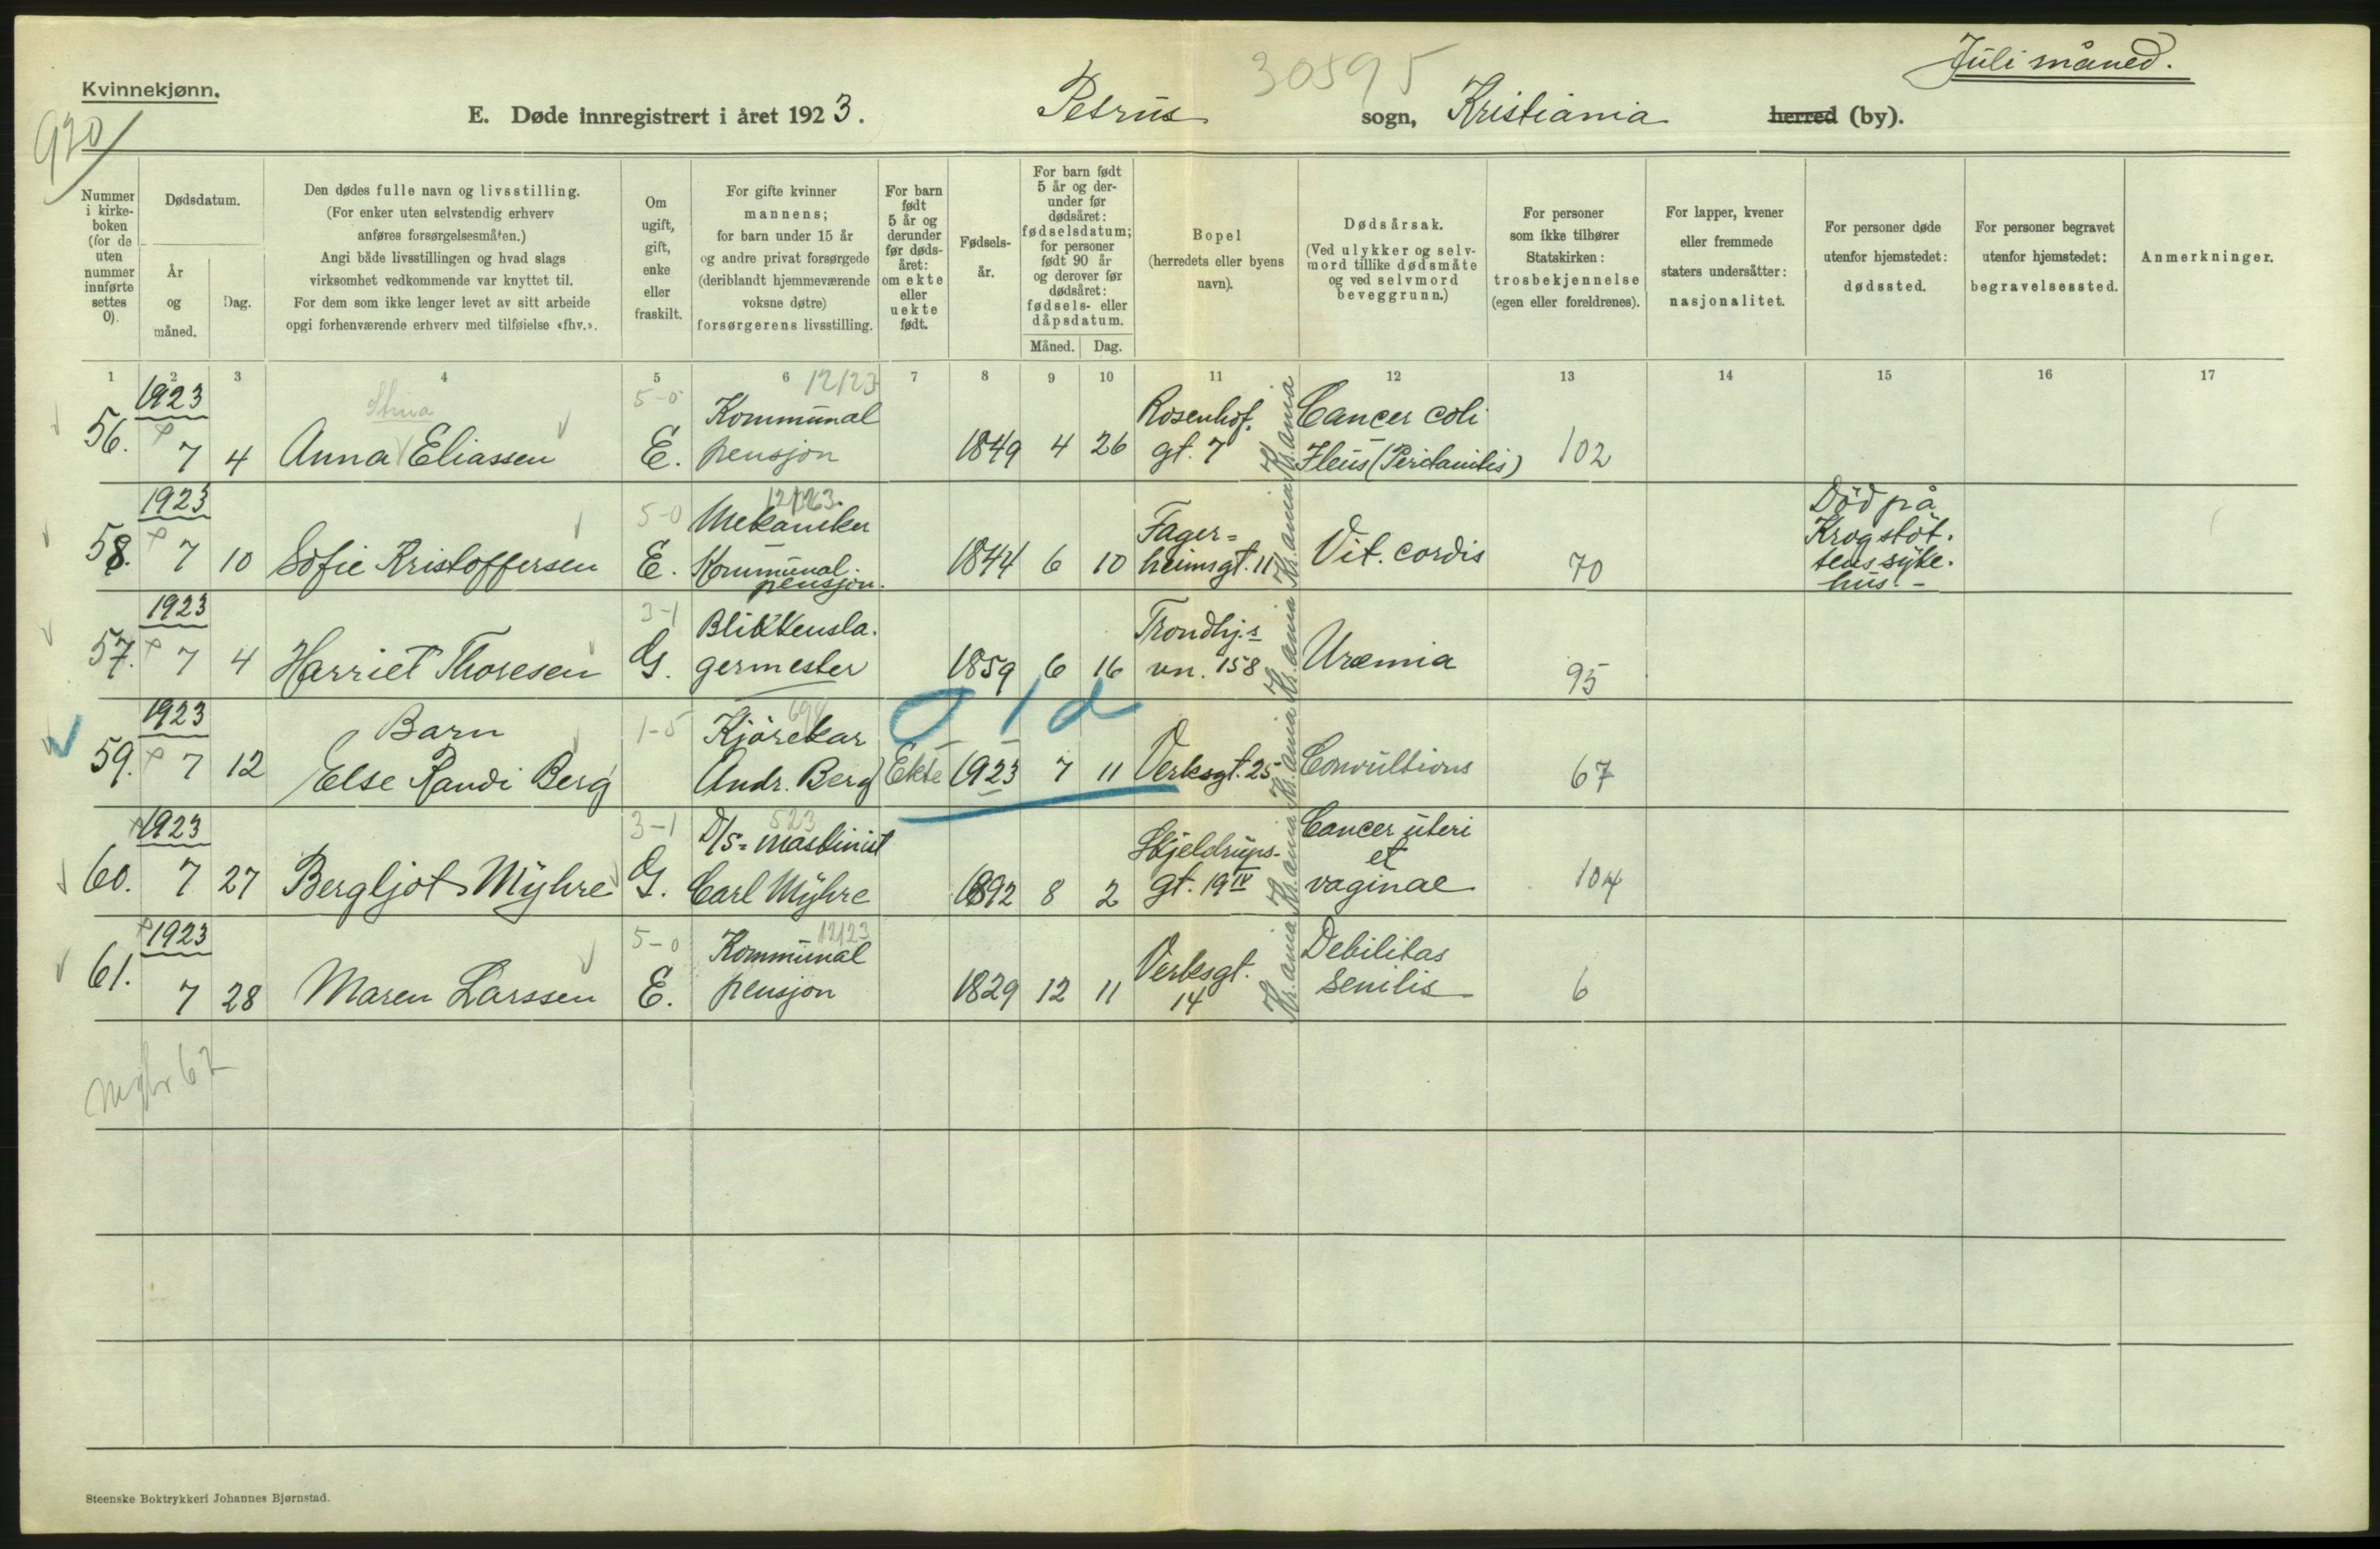 Juli måned.
Kvinnekjønn.
30595
920
E. Døde innregistrert i året 1923.
Petrus sogn, Kristiania herred (by).
Nummer i kirke-boken (for de uten nummer innførte settes 0).
Dødsdatum.
År og måned.
Dag.
Den dødes fulle navn og livsstilling.
(For enker uten selvstendig erhverv
anføres forsørgelsesmåten.)
Angi både livsstillingen og hvad slags
virksomhet vedkommende var knyttet til.
For dem som ikke lenger levet av sitt arbeide
opgi forhenværende erhverv med tilføielse «fhv.».
Om ugift, gift, enke eller fraskilt.
For gifte kvinner
mannens;
for barn under 15 år
og andre privat forsørgede
(deriblandt hjemmeværende
voksne døtre)
forsørgerens livsstilling.
For barn født 5 år og derunder før døds-året: om ekte eller uekte født.
Fødsels-år.
For barn født 5 år og der-under før dødsåret: fødselsdatum; for personer født 90 år og derover før dødsåret: fødsels- eller dåpsdatum.
Måned. Dag.
Bopel
(herredets eller byens
navn).
Dødsårsak.
(Ved ulykker og selv-
mord tillike dødsmåte
og ved selvmord
beveggrunn.)
For personer
som ikke tilhører
Statskirken:
trosbekjennelse
(egen eller foreldrenes).
For lapper, kvener
eller fremmede
staters undersåtter:
nasjonalitet.
For personer døde
utenfor hjemstedet:
dødssted.
For personer begravet
utenfor hjemstedet:
begravelsessted.
Anmerkninger.
1 2 3 4 5 6 7 8 9 10 11 12 13 14 15 16 17
56. 1923 7 4 Stina Anna Eliassen 5-0 E. 12/23 Kommunal pensjon 1849 4 26 Rosenhof. gt. 7 Kr.ania Cancer coli Ileus (Peritonitis) 102
58. 1923 7 10 Sofie Kristoffersen 5-0 E. Mekaniker Kommunal. pensjon. 1844 6 10 Fager= heimsgt. 11 Kr.ania Vit. cordis 70 Död på Krogstöt. tens syke. hus. -
57. 1923 7 4 Harriet Thoresen 3-1 G. Blikkensla. germester 1859 6 16 Trondhj.s vn. 158 Kr.ania Uræmia 95
59. 1923 7 12 Barn Else Randi Berg 1-5 Kjörekar Andr. Berg Ekte 1923 7 11 Verksgt. 25 Kr.ania Convultions 67
0 1 d
60. 1923 7 27 Bergljot Myhre 3-1 G. 523 D/S= maskinist Carl Myhre 1892 8 2 Skjeldrups- gt. 19 IV Kr.ania Cancer uteri et vaginae 104
61. 1923 7 28 Maren Larssen 5-0 E. 12/23 Kommunal pensjon 1829 12 11 Verksgt. 14 Kr.ania Debilitas senilis 6
62
Steenske Boktrykkeri Johannes Bjørnstad.